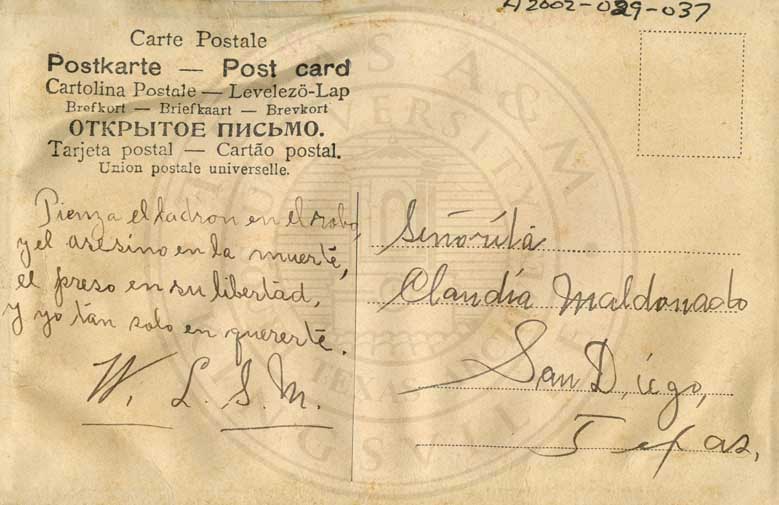 A2002-029-037
Carte Postale
Postkarte — Post card
Cartolina Postale — Levelezö-Lap
Brefkort — Briefkaart — Brevkort
ОТКРЫТОЕ ПИСЬМО.
Tarjeta postal — Cartão postal.
Union postale universelle.
Pienza el ladron en el robo,
y el asesino en la muerté,
el preso en su libertad,
y yo tan solo en quererté.
W. L. S. M.
Señorita
Claudia Maldonado
San Diego,
Texas,
TEXAS A&M UNIVERSITY
KINGSVILLE